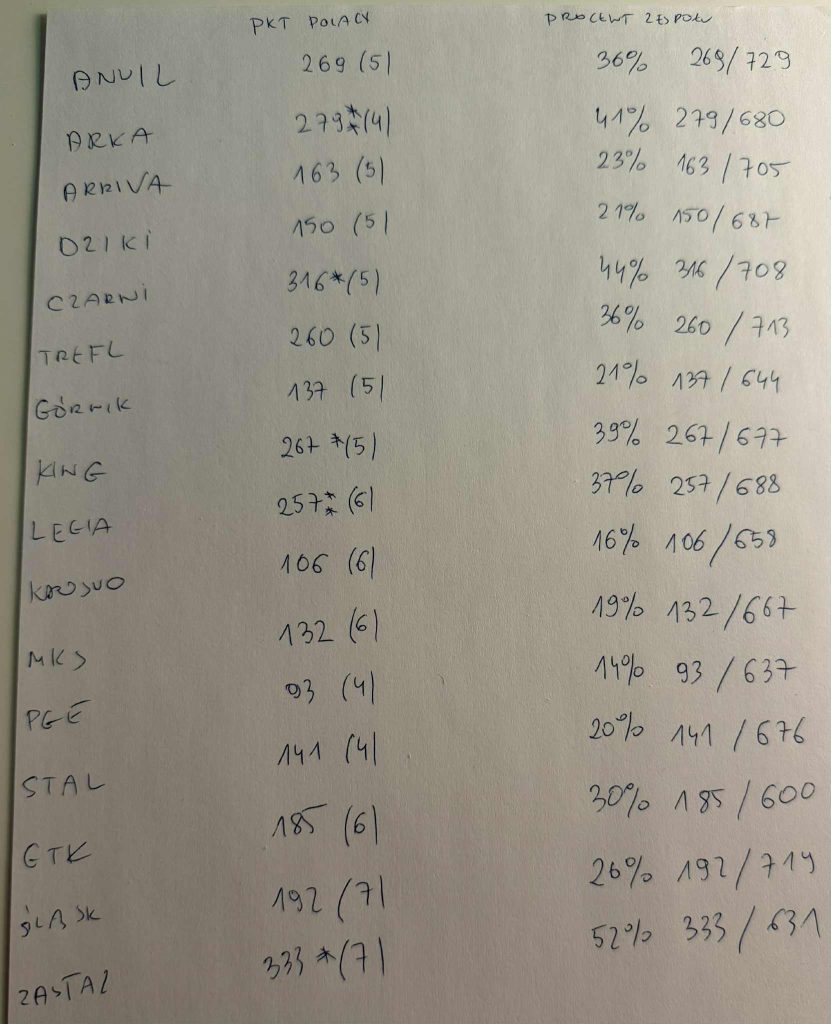 PKT POLACY PROCENT ZESPOŁU
ANWIL 269 (5) 36% 269/729
ARKA 279** (4) 41% 279/680
ARRIVA 163 (5) 23% 163/705
DZIKI 150 (5) 21% 150/687
CZARNI 316* (5) 44% 316/708
TREFL 260 (5) 36% 260/713
GÓRNIK 137 (5) 21% 137/644
KING 267* (5) 39% 267/677
LEGIA 257** (6) 37% 257/688
KROSNO 106 (6) 16% 106/658
MKS 132 (6) 19% 132/667
PGE 93 (4) 14% 93/637
STAL 141 (4) 20% 141/676
GTK 185 (6) 30% 185/600
ŚLĄSK 192 (7) 26% 192/719
ZASTAL 333* (7) 52% 333/631